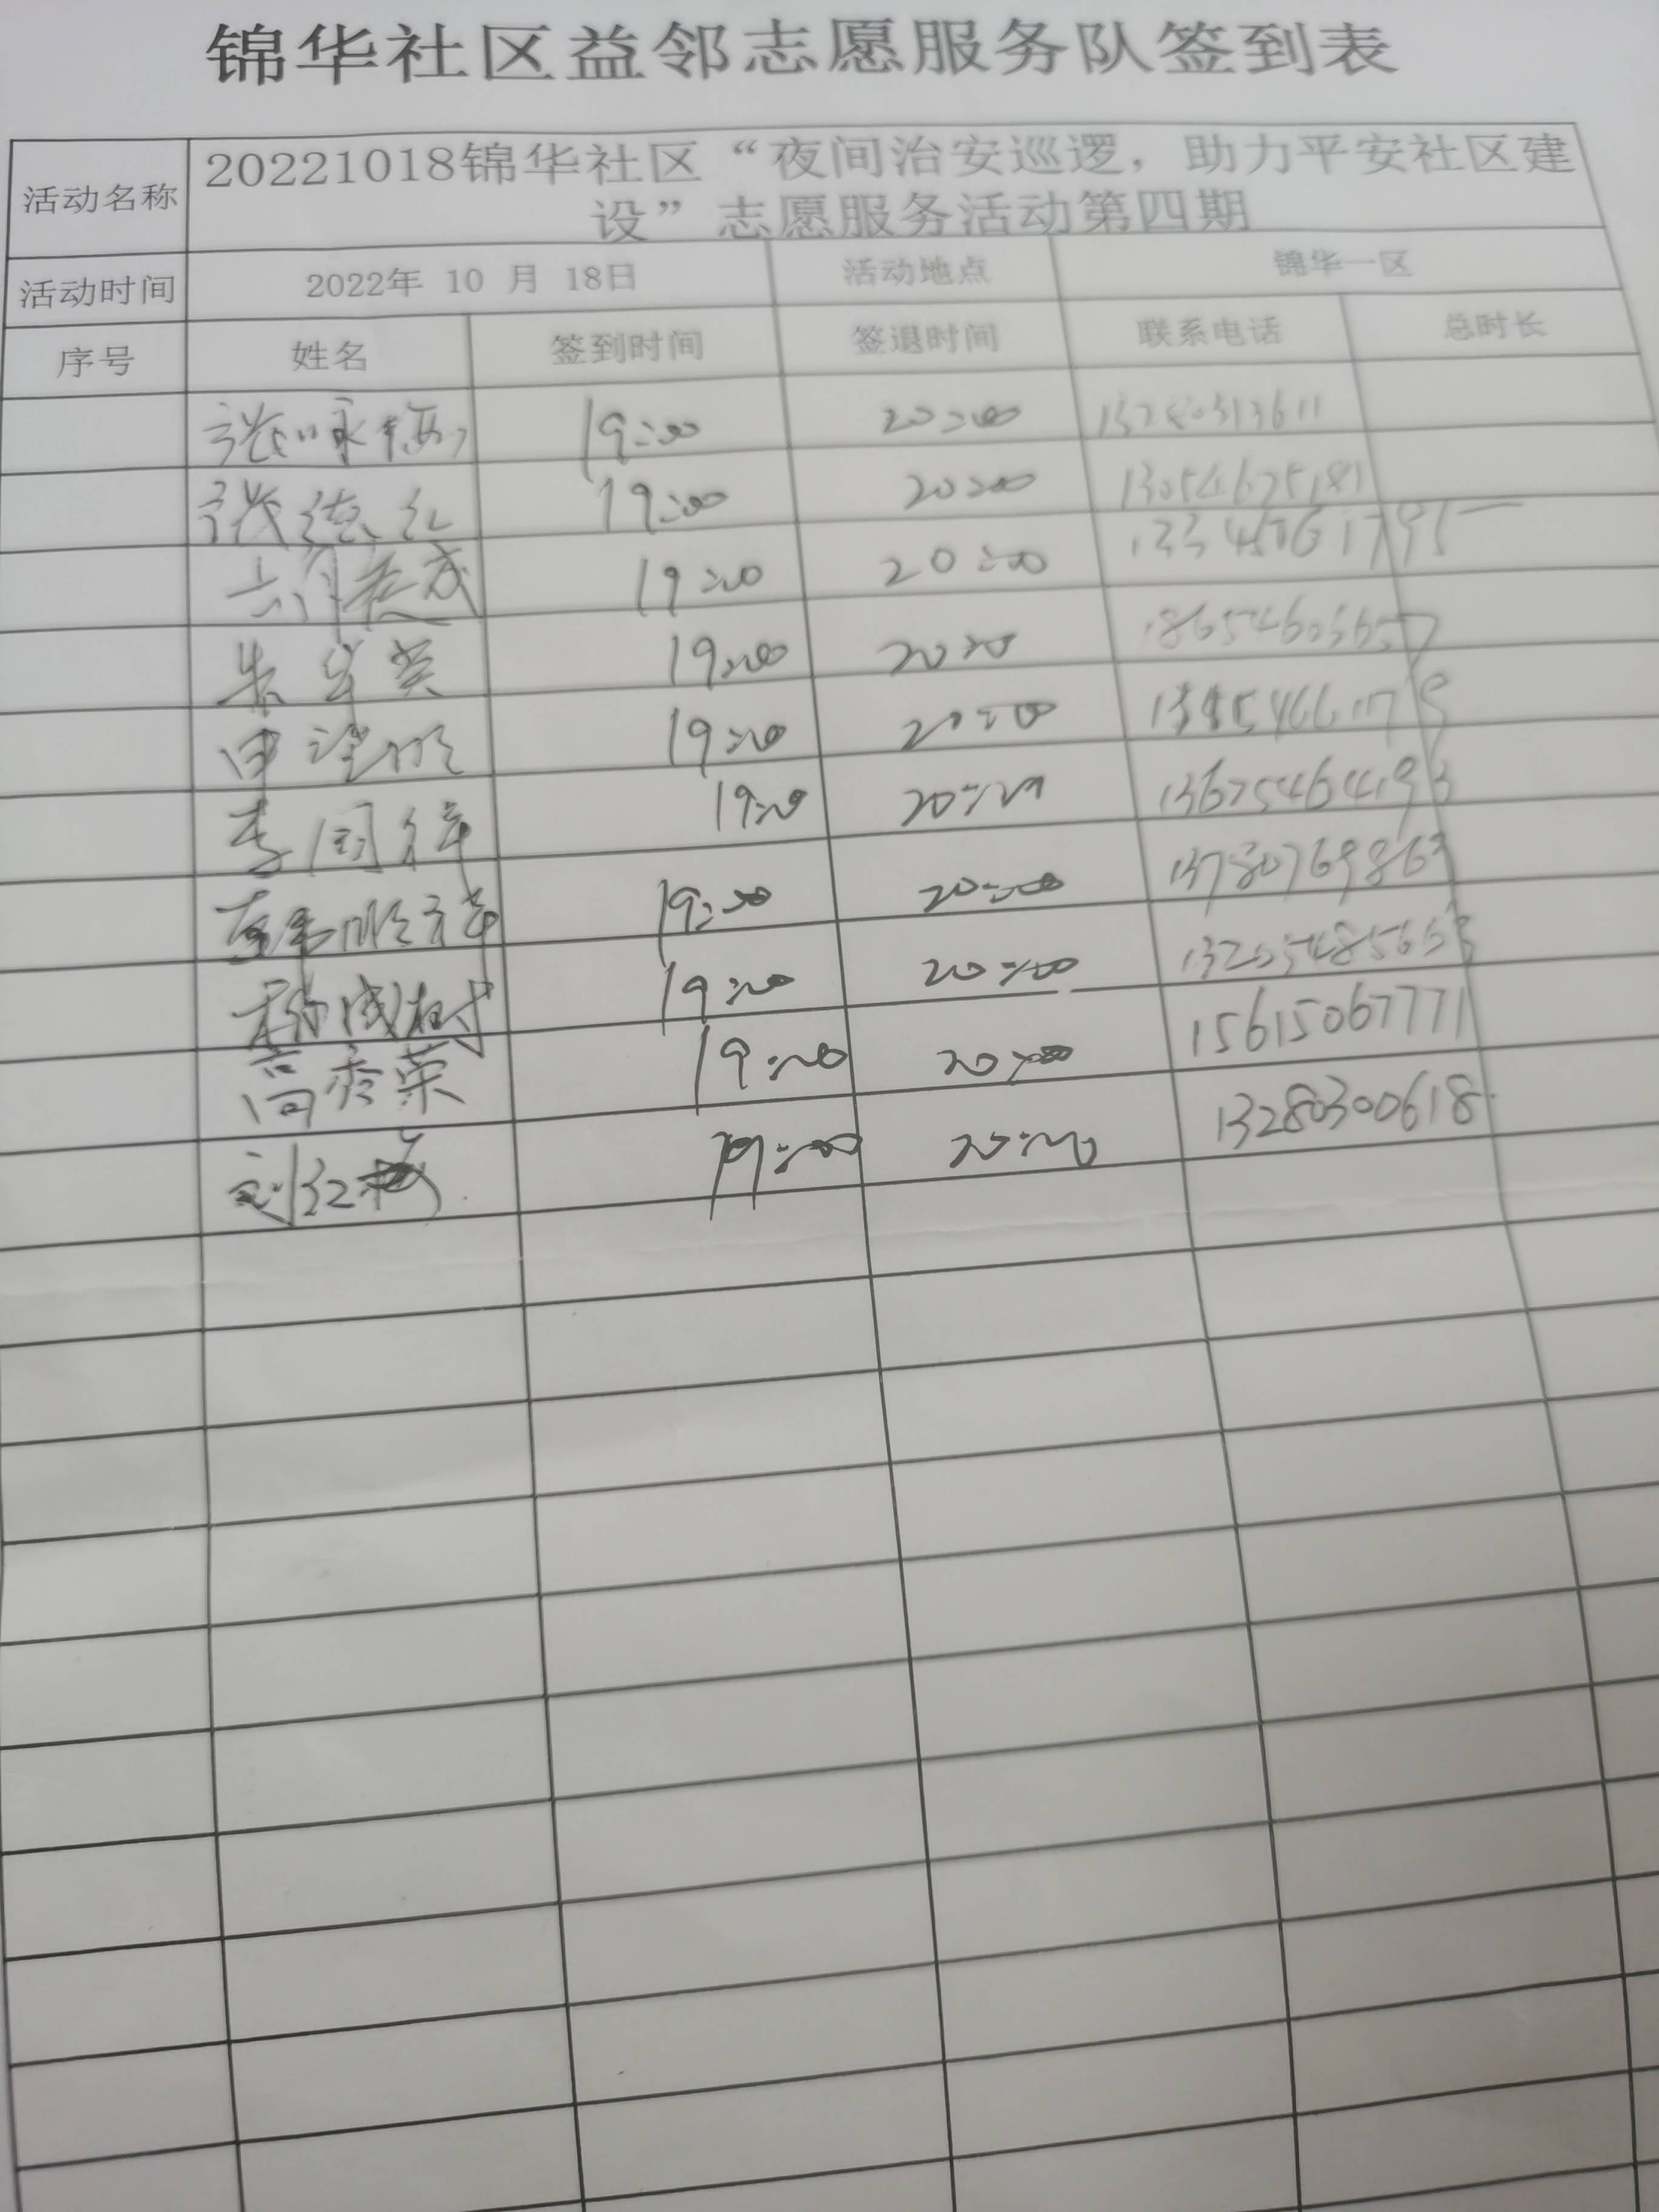 锦华社区益邻志愿服务队签到表
活动名称 20221018锦华社区“夜间治安巡逻，助力平安社区建
设”志愿服务活动第四期
活动时间 2022年 10 月 18日 活动地点 锦华一区
序号 姓名 签到时间 签退时间 联系电话 总时长
张咏梅 19:00 20:00
张德红 19:00 20:00
19:00 20:00
朱学英 19:00 20:00
申望明 19:00 20:00
李国祥 19:00 20:00 13675464193
19:00 20:00 13780769863
成树 19:00 20:00
高秀荣 19:00 20:00 15615067771
刘红梅 19:00 20:00 13280300618